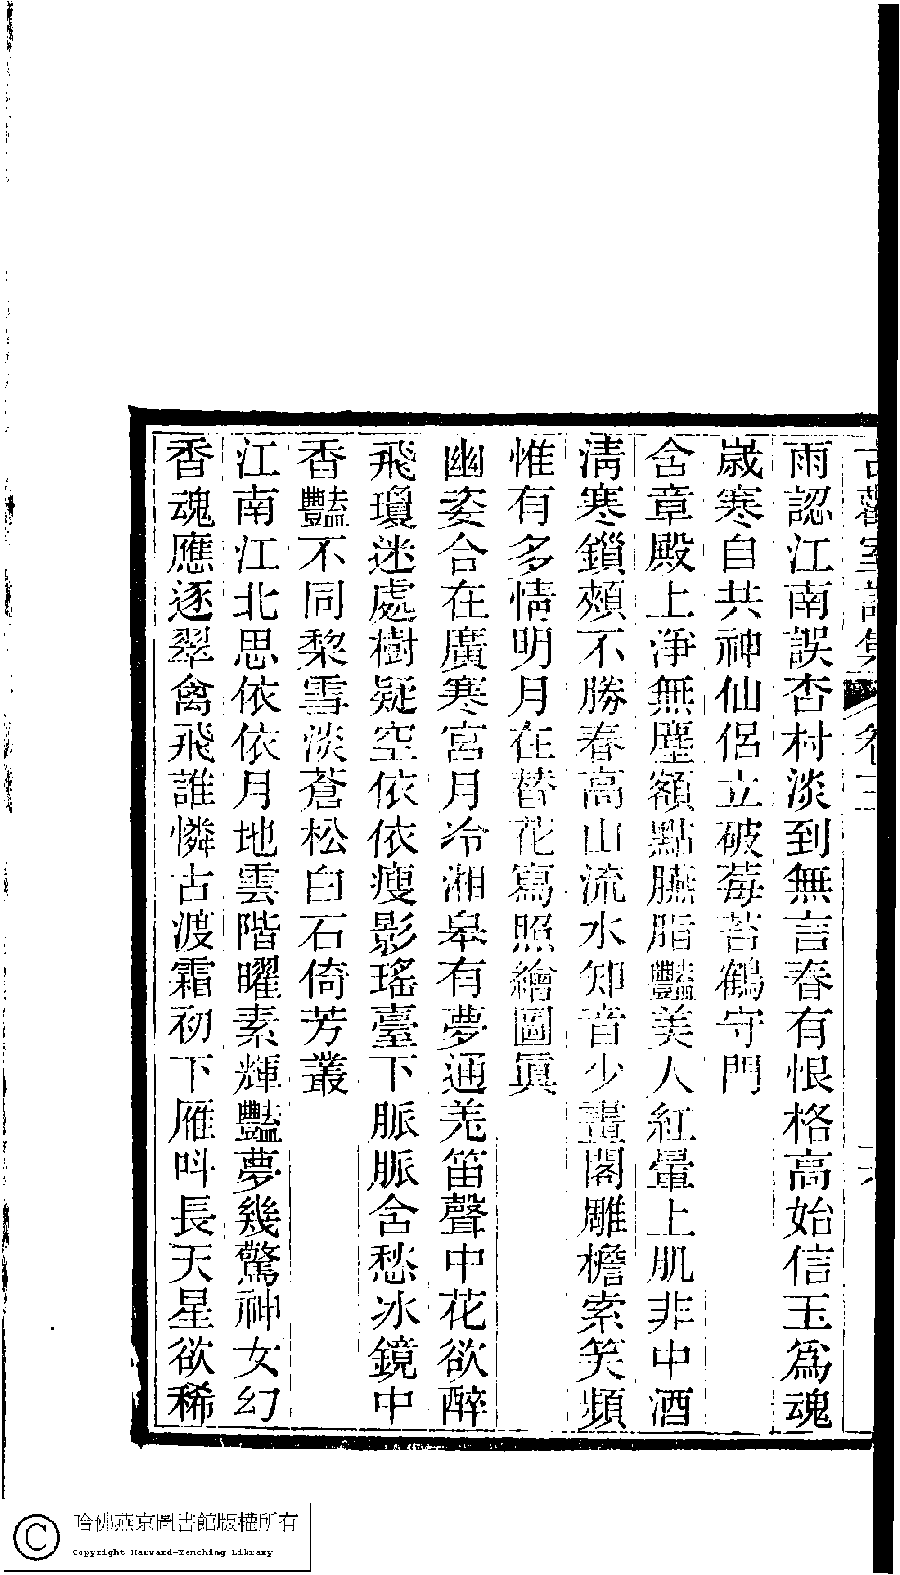 雨認江南誤杏村淡到無言春有恨格高始信玉爲魂
歲寒自共神仙侶立破莓苔鶴守門
含章殿上淨無塵額點臙脂豔美人紅暈上肌非中酒
淸寒鎖頰不勝春高山流水知音少畫閣雕檐索笑頻
惟有多情明月在替花寫照繪圖眞
幽姿合在廣寒宮月冷湘皋有夢通羌笛聲中花欲醉
飛瓊迷處樹疑空依依瘦影瑤臺下脈脈含愁冰鏡中
香豔不同黎雪淡蒼松白石倚芳叢
江南江北思依依月地雲階曜素輝豔夢幾驚神女幻
香魂應逐翠禽飛誰憐古渡霜初下雁叫長天星欲稀
哈佛燕京圖書館版權所有
Copyright Harvard-Yenching Library